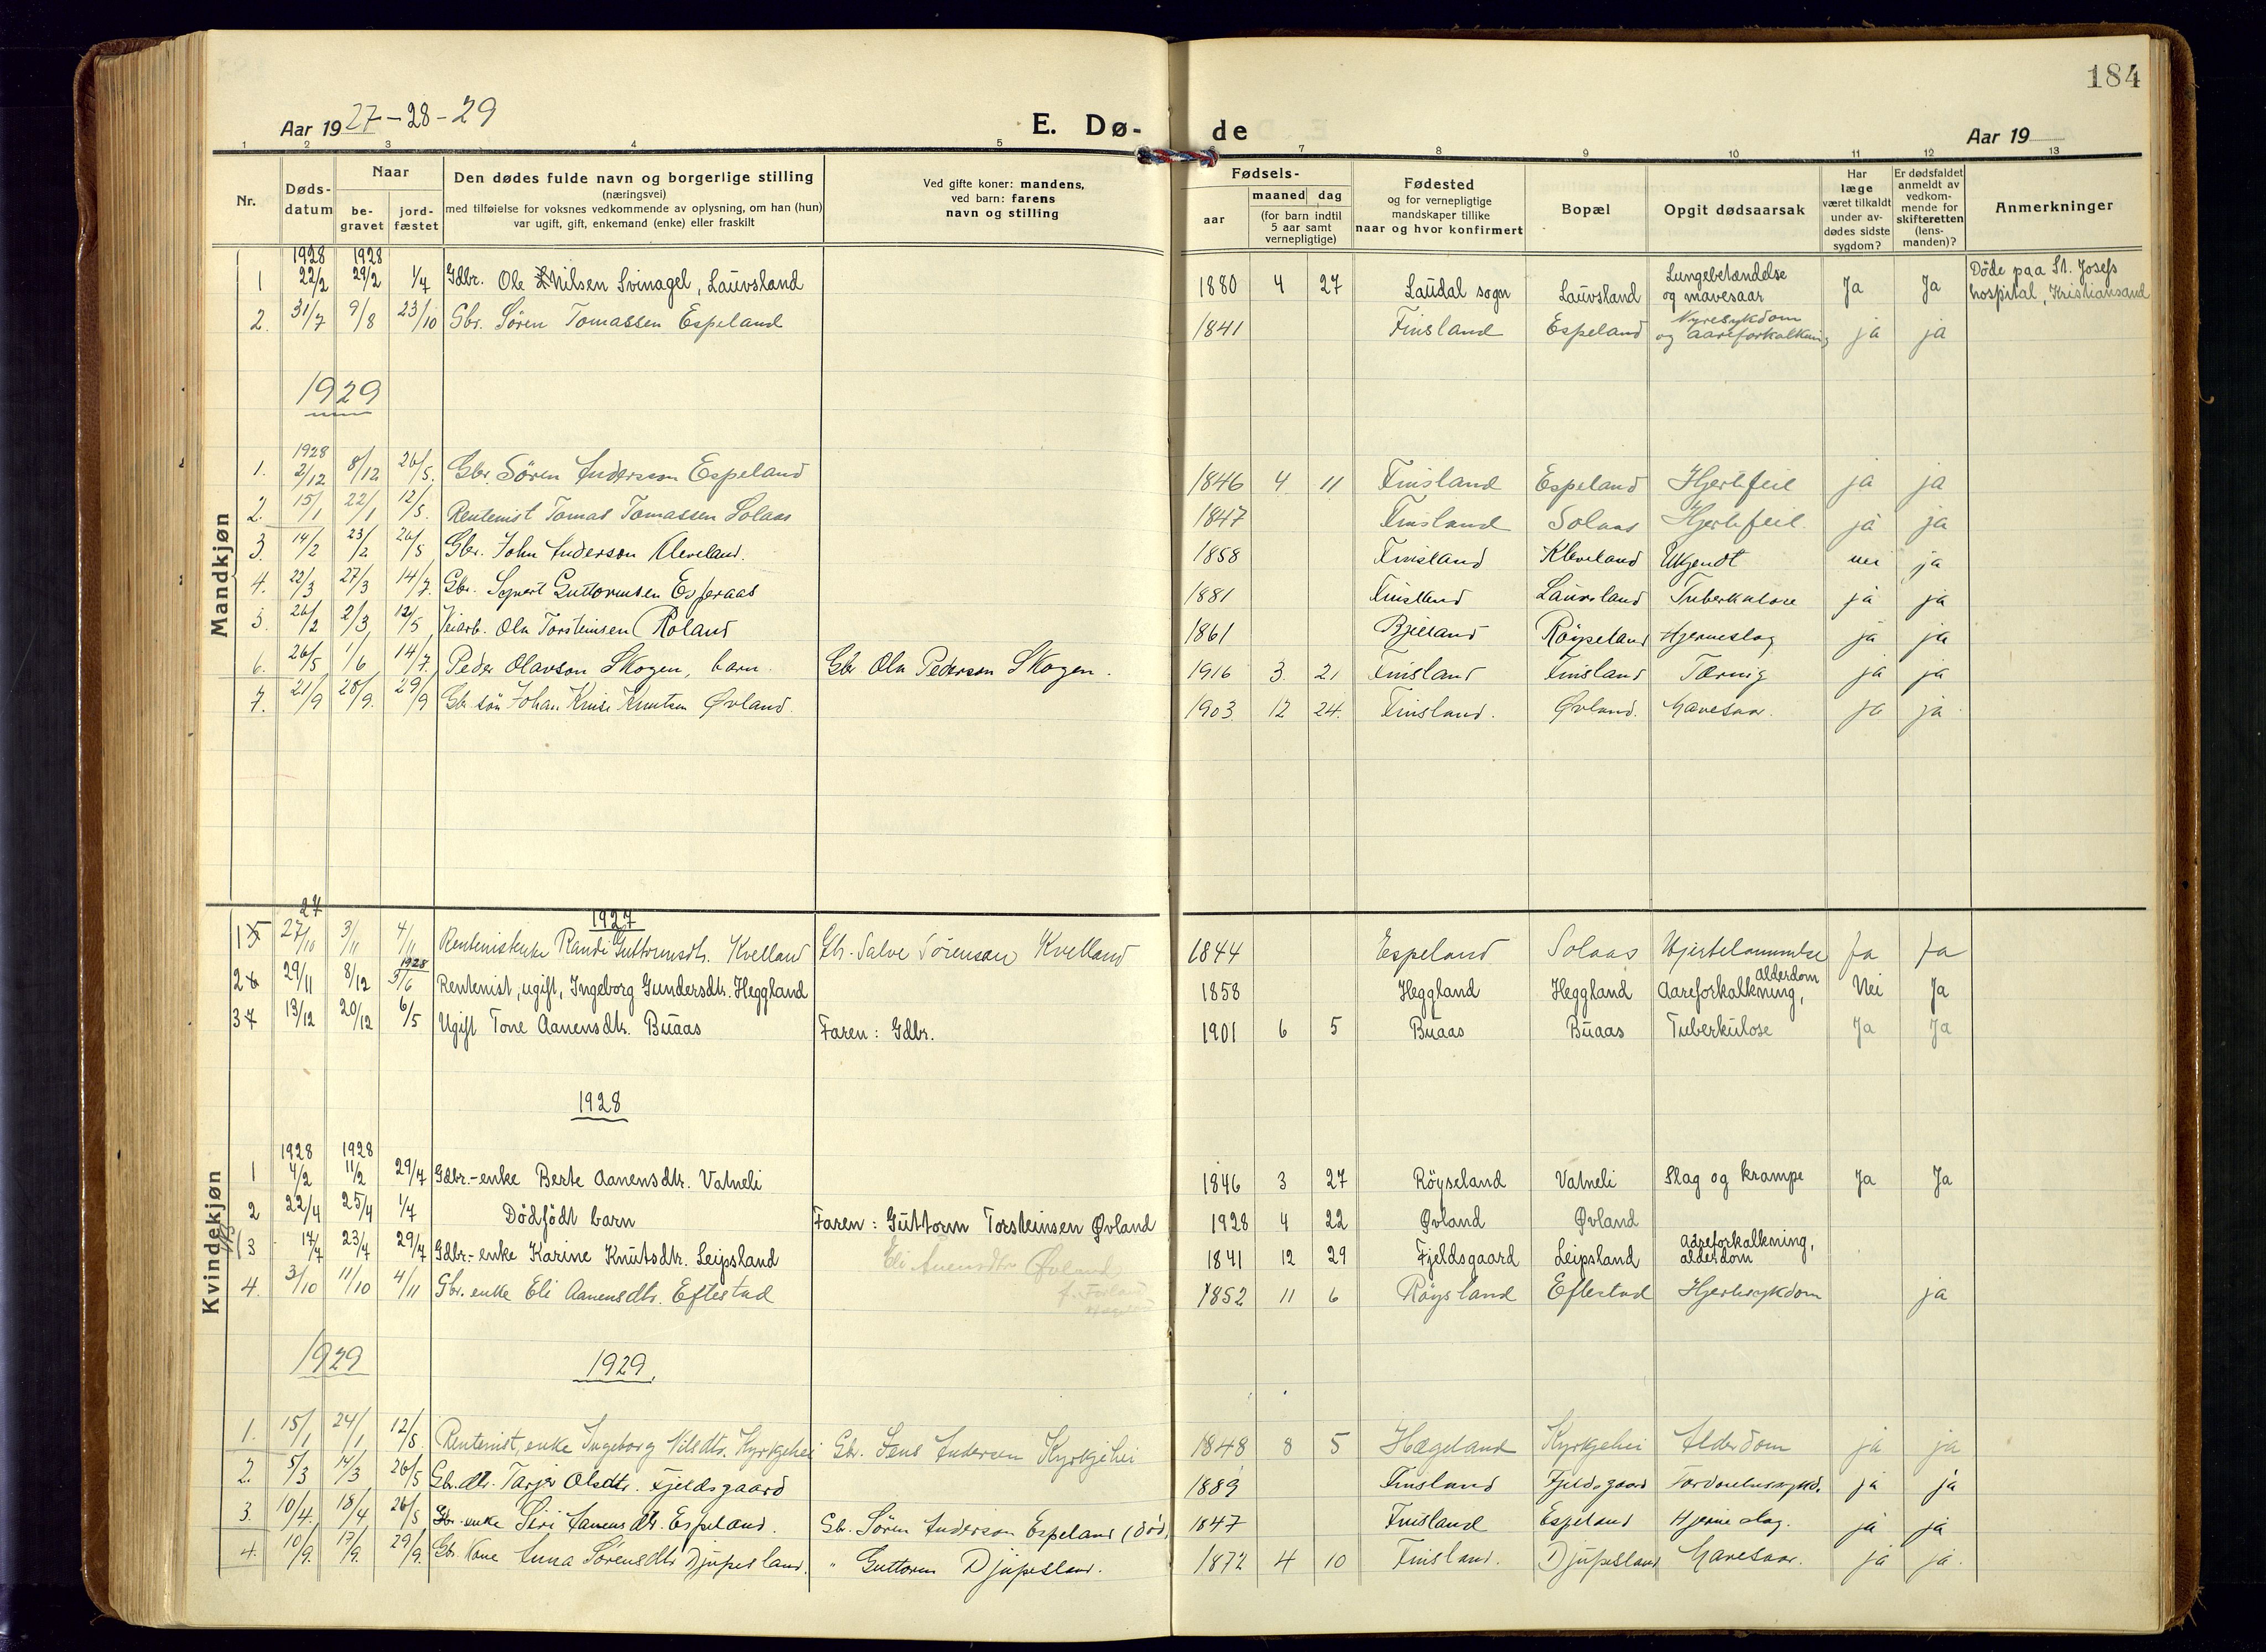 184
Aar 1927-28-29
E. Dø- de
Aar 19
1 2 3 4 5 6 7 8 9 10 11 12 13
Nr.
Døds-
datum
Naar
be-
gravet
jord-
fæstet
Den dødes fulde navn og borgerlige stilling
(næringsvei)
med tilføielse for voksnes vedkommende av oplysning, om han (hun)
var ugift, gift, enkemand (enke) eller fraskilt
Ved gifte koner: mandens,
ved barn: farens
navn og stilling
Fødsels-
aar
maaned dag
(for barn indtil
5 aar samt
vernepligtige)
Fødested
og for vernepligtige
mandskaper tillike
naar og hvor konfirmert
Bopæl
Opgit dødsaarsak
Har
læge
været tilkaldt
under av-
dødes sidste
sygdom?
Er dødsfaldet
anmeldt av
vedkom-
mende for
skifteretten
(lens-
manden)?
Anmerkninger
Mandkjøn
1928 1928
1 22/2 29/2 1/4 Gdbr. Ole Nilsen Svinagel, Lauvsland 1880 4 27 Laudal sogn Lauvsland Lungebetændelse og mavesaar Ja Ja Döde paa St. Josefs hospital, Kristiansand
2. 31/7 9/8 23/10 Gbr. Søren Tomassen Espeland 1841 Finsland Espeland Nyresykdom og aareforkalkning ja ja
1929
1928
1. 2/12 8/12 26/5. Gbr. Søren Anderson Espeland 1846 4 11 Finsland Espeland Hjertefeil ja ja
2. 15/1 22/1 12/5. Rentenist Tomas Tomassen Solaas 1847 Finsland Solaas Hjertefeil. ja ja
3. 14/2 23/2 26/5 Gbr. John Anderson Kleveland. 1858 Finsland Kleveland Ukjendt nei ja
4. 22/3 27/3 14/7. Gbr. Guttormsen 1881 Finsland Lauvsland Tuberkulose ja ja
5. 26/2 2/3 12/5 Veiarb. Ola Torsteinsen Roland 1861 Bjelland Röyseland Hjerneslag ja ja
6. 26/5 1/6 14/7. Peder Olavson Skogen, barn. Gbr Ola Pederson Skogen. 1916 3. 21 Finsland Finsland Tæring ja ja
7. 21/9 28/9. 29/9 Gbr. søn Johan Knutsen Øvland. 1903 12 24. Finsland. Øvland. Mavesaar. ja ja
Kvindekjøn
1927
27
1 5 27/10 3/11 4/11 Rentenistenke Randi Guttormsdtr. Kvelland Gbr. Salve Sörenson Kvelland 1844 Espeland Solaas Hjertelammelse Ja Ja
1928
2 6 29/11 8/12 3/6 Rentenist, ugift, Ingeborg Gundersdtr. Heggland 1858 Heggland Heggland Aareforkalkning, alderdom Nei Ja
3 7 13/12 20/12 6/5 Ugift Tone Aanensdtr. Buaas Faren: Gdbr. 1901 6 5 Buaas Buaas Tuberkulose Ja Ja
1928
1928 1928
1 4/2 11/2 29/7 Gdbr.-enke Berte Aanensdtr. Vatneli 1846 3 27 Röyseland Vatneli Slag og krampe Ja Ja
2 22/4 25/4 1/7 Dödfödt barn Faren: Guttorm Torsteinsen Øvland 1928 4 22 Øvland Øvland
3 17/7 23/7 29/7 Gdbr.-enke Karine Knutsdtr. Leipsland 1841 12 29 Fjeldsgaard Leipsland Aareforkalkning, alderdom
Eli Aanensdtr Øvland
4. 3/10 11/10 4/11 Gbr. enke Eli Aanensdtr. Eftestad 1852 11 6 Röysland Eftestad Hjertesykdom ja
1929 1929.
1. 15/1 24/1 12/5. Rentenist, enke Ingeborg Nilsdtr. Kyrkjehei Gbr. Jens Anderson Kyrkjehei 1848 8 5 Hægeland Kyrkjehei Alderdom ja ja
2. 5/3 14/3 26/5 Gbr.dtr. Tarjer Olsdtr. Fjeldsgaard 1889 Finsland Fjeldsgaard ja ja
3. 10/4. 18/4 26/5 Gbr. enke Siri Aanensdtr. Espeland. Gbr. Søren Anderson Espeland (död) 1847 Finsland Espeland Hjerneslag. ja ja
4. 10/9. 17/9. 29/9. Gbr. Kone Anna Sørensdtr Djupesland. " Guttorm Djupesland. 1872 4 10 Finsland. Djupesland Mavesaar. ja ja.